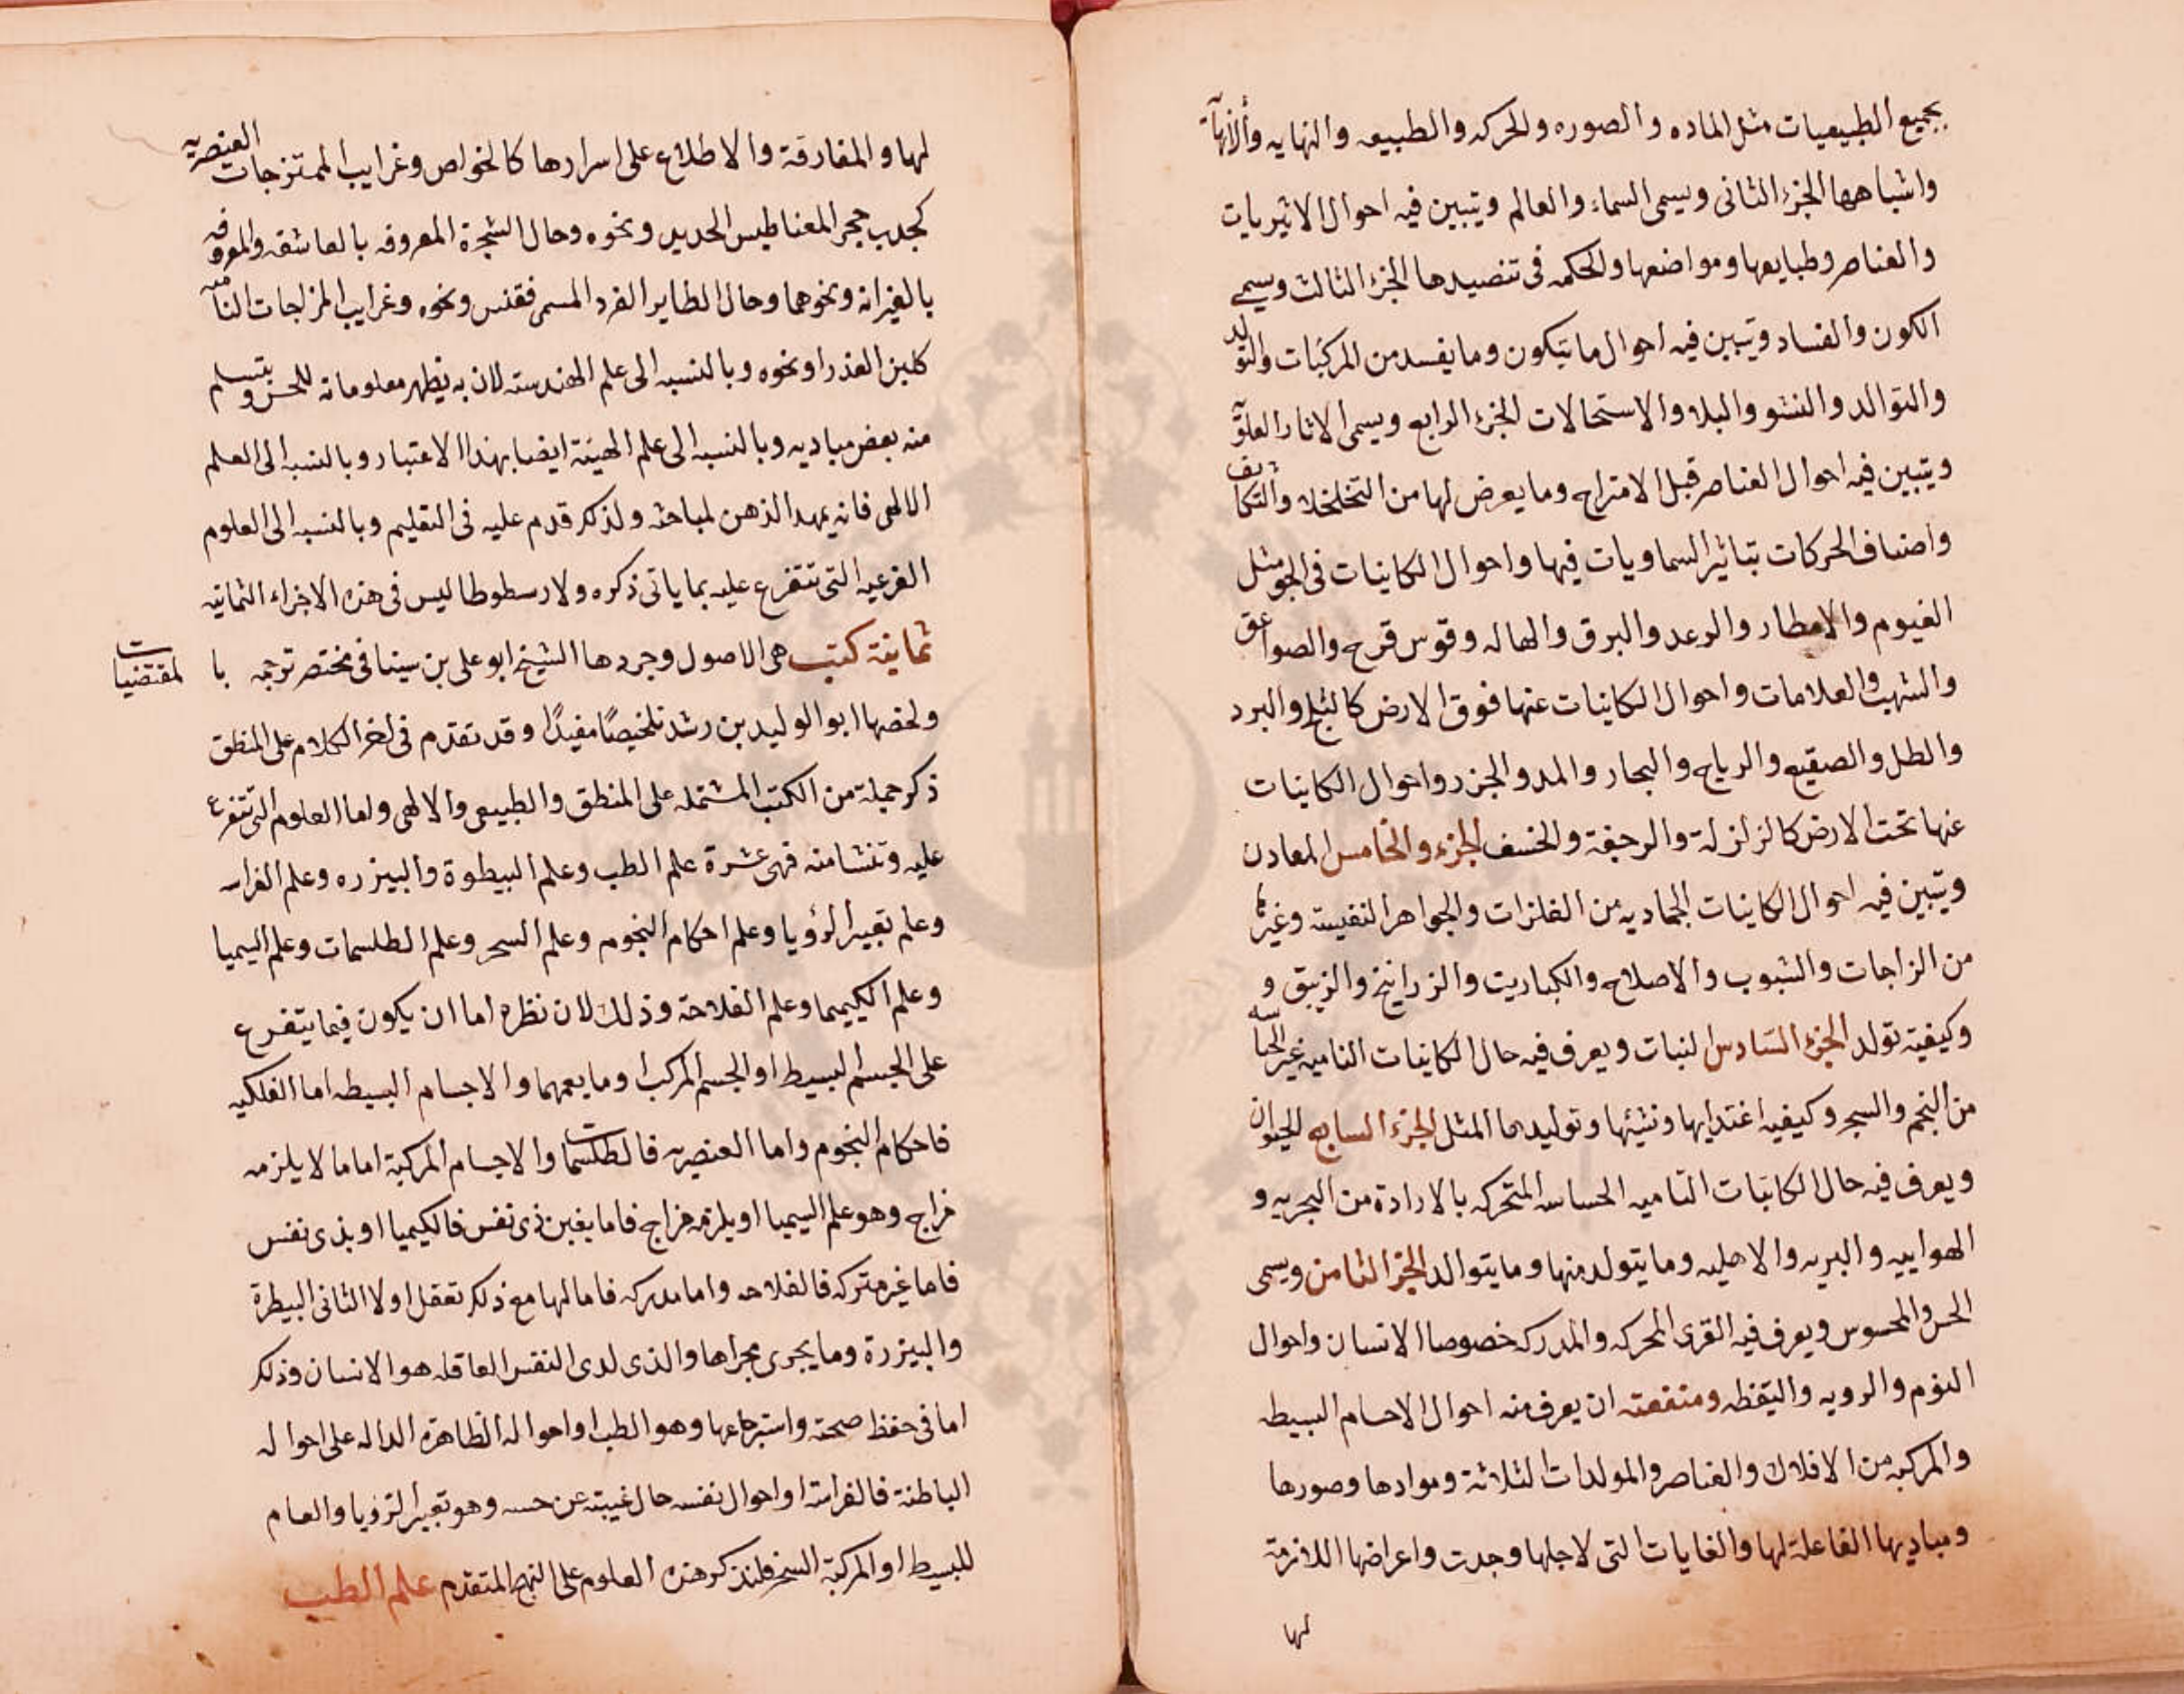 بجميع الطبيعيات مثل الماده والصوره والحركه والطبيعه والنهايه وألانهآية
واشباهها الجزء الثانى ويسمى السماء والعالم ويتبين فيه احوال الاثيريات
والعناصر وطبايعها ومواضعها والحكمه فى تنضيدها الجزء الثالث ويسمى
الكون والفساد ويتبين فيه احوال ما يتكون وما يفسد من المركبات والتولد
والتوالد والنشو والبلا والاستحالات الجزء الرابع ويسمى الاثار العلوّيه
ويتبين فيه احوال العناصر قبل الامتزاج وما يعرض لها من التخلخلا والتكاثف
واصناف الحركات بتاثير السماويات فيها واحوال الكاينات فى الجو مثل
الغيوم والامطار والرعد والبرق والهاله وقوس قزح والصواعق
والشهب والعلامات واحوال الكاينات عنها فوق الارض كالثلج والبرد
والطل والصقيع والرياح والبحار والمد والجزر واحوال الكاينات
عنها تحت الارض كالزلزلة والرجفة والخسف الجزء والخامس المعادن
ويتبين فيه احوال الكاينات الجماديه من الفلزات والجواهر النفيسة وغيرها
من الزاجات والشبوب والاصلاح والكباريت والزرانيخ والزيبق و
وكيفية تولد الجزء السّادس النبات ويعرف فيه حال الكاينات الناميه غير الحساسه
من النجم والسجر وكيفيه اغتدايها ونشيها وتوليدها المثل الجزء السابع الحيوان
ويعرف فيه حال الكاينات الناميه الحساسه المتحركه بالارادة من البحريه و
الهواييه والبريه والاهليه وما يتولد منها وما يتوالد الجزء الثامن ويسمى
الحس والمحسوس ويعرف فيه القرى المحركه والمدركه خصوصا الانسان واحوال
النوم والرويه واليقظه ومنفعته ان يعرف منه احوال الاجسام البسيطه
والمركبه من الافلاك والعناصر والمولدات الثلاثة وموادها وصورها
ومباديها الفاعلة لها والغايات التى لاجلها وجدت واعراضها اللازمة
لها
لها والمفارقة والاطلاع على اسرارها كالخواص وغرايب الممتزجات العنصريه
كجدب حجر المغناطيس الحديد ونحوه وحال الشجرة المعروفه بالعاشقه والمعروفه
بالغيرانه ونحوهما وحال الطاير الفرد المسمى فقنس ونحوه وغرايب المزاجات التامه
كلبن العذرا ونحوه وبالنسبه الى علم الهندسته لان به يظهر معلوماته للحس ويتسلم
منه بعض مباديه وبالنسبه الى علم الهيئة ايضا بهذا الاعتبار وبالنسبه الى العلم
الالهى فانه يمهد الذهن لمباحثه ولذلك قدم عليه فى التعليم وبالنسبه الى العلوم
الفرعيه التى تتفرع عليه بما ياتى ذكره ولارسطوطاليس فى هذه الاجزاء الثمانيه
ثمانية كتب هى الاصول وجردها الشيخ ابو على بن سينا فى مختصر ترجمه با لمقتضيات
ولخصها ابو الوليد بن رشد تلخيصًا مفيدًا وقد تقدم فى اخر الكلام على المنطق
ذكر جملة من الكتب المشتمله على المنطق والطبيعى والالهى واما العلوم التى تتفرع
عليه وتنشا منه فهى عشرة علم الطب وعلم البيطرة والبيزره وعلم الفراسه
وعلم تعبير الرؤيا وعلم احكام النجوم وعلم السحر وعلم الطلسمات وعلم السيميا
وعلم الكيميا وعلم الفلاحة وذلك لان نظره اما ان يكون فيما يتفرع
على الجسم البسيط او الجسم المركب او ما يعمهما والاجسام البسيطه اما الفلكيه
فاحكام النجوم واما العنصريه فالطلسمات والاجسام المركبة اما ما لا يلزمه
مزاج وهو علم السيميا او يلزمه مزاج فاما بغير ذى نفس فالكيميا او بذى نفس
فاما غير مدركه فالفلاحه واما مدركه فاما لها مع ذلك تعقل او لا الثانى البيطرة
والبيزرة وما يجرى مجراها والذى لدى النفس العاقله هو الانسان وذلك
اما فى حفظ صحته واسترجاعها وهو الطب او احواله الظاهرة الداله على احواله
الباطنة فالفراسة او احوال نفسه حال غيبته عن حسه وهو تعبير الرؤيا والعام
للبسيط او المركبة السحر فلنذكر هذه العلوم على النهج المتقدم علم الطب